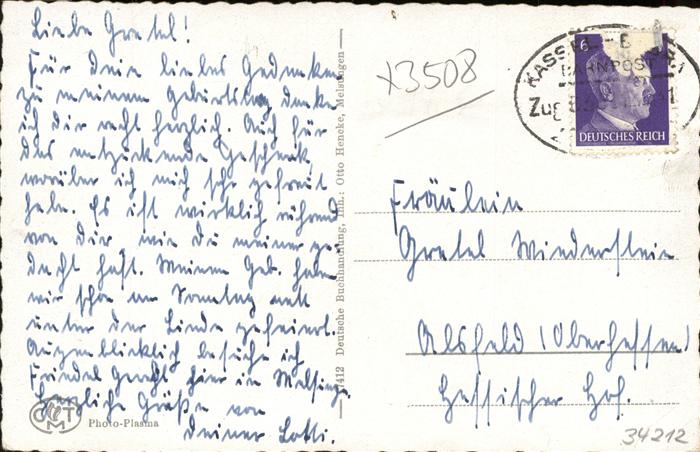 Liebe Gretel!
Für Dein liebes Gedenken
zu meinem Geburtstag danke
ich dir recht herzlich. Auch für
das entzückende Geschenk,
worüber ich mich sehr gefreut
habe. Es ist wirklich rührend
von Dir, wie Du meiner ge-
dacht hast. Meinen Geb. haben
wir schon am Sonntag nett
unter der Linde gefeiert.
Augenblicklich besuche ich
Friedel hier in Melsungen.
Herzliche Grüße von
Deiner Lotti.
CMT
Photo-Plasma
7412 Deutsche Buchhandlung, Inh.: Otto Hencke, Melsungen
x3508
KASSEL
BAHNPOST
Zug
6
DEUTSCHES REICH
Fräulein
Gretel Wiederstein
Alsfeld (Oberhessen)
Hessischer Hof.
34212